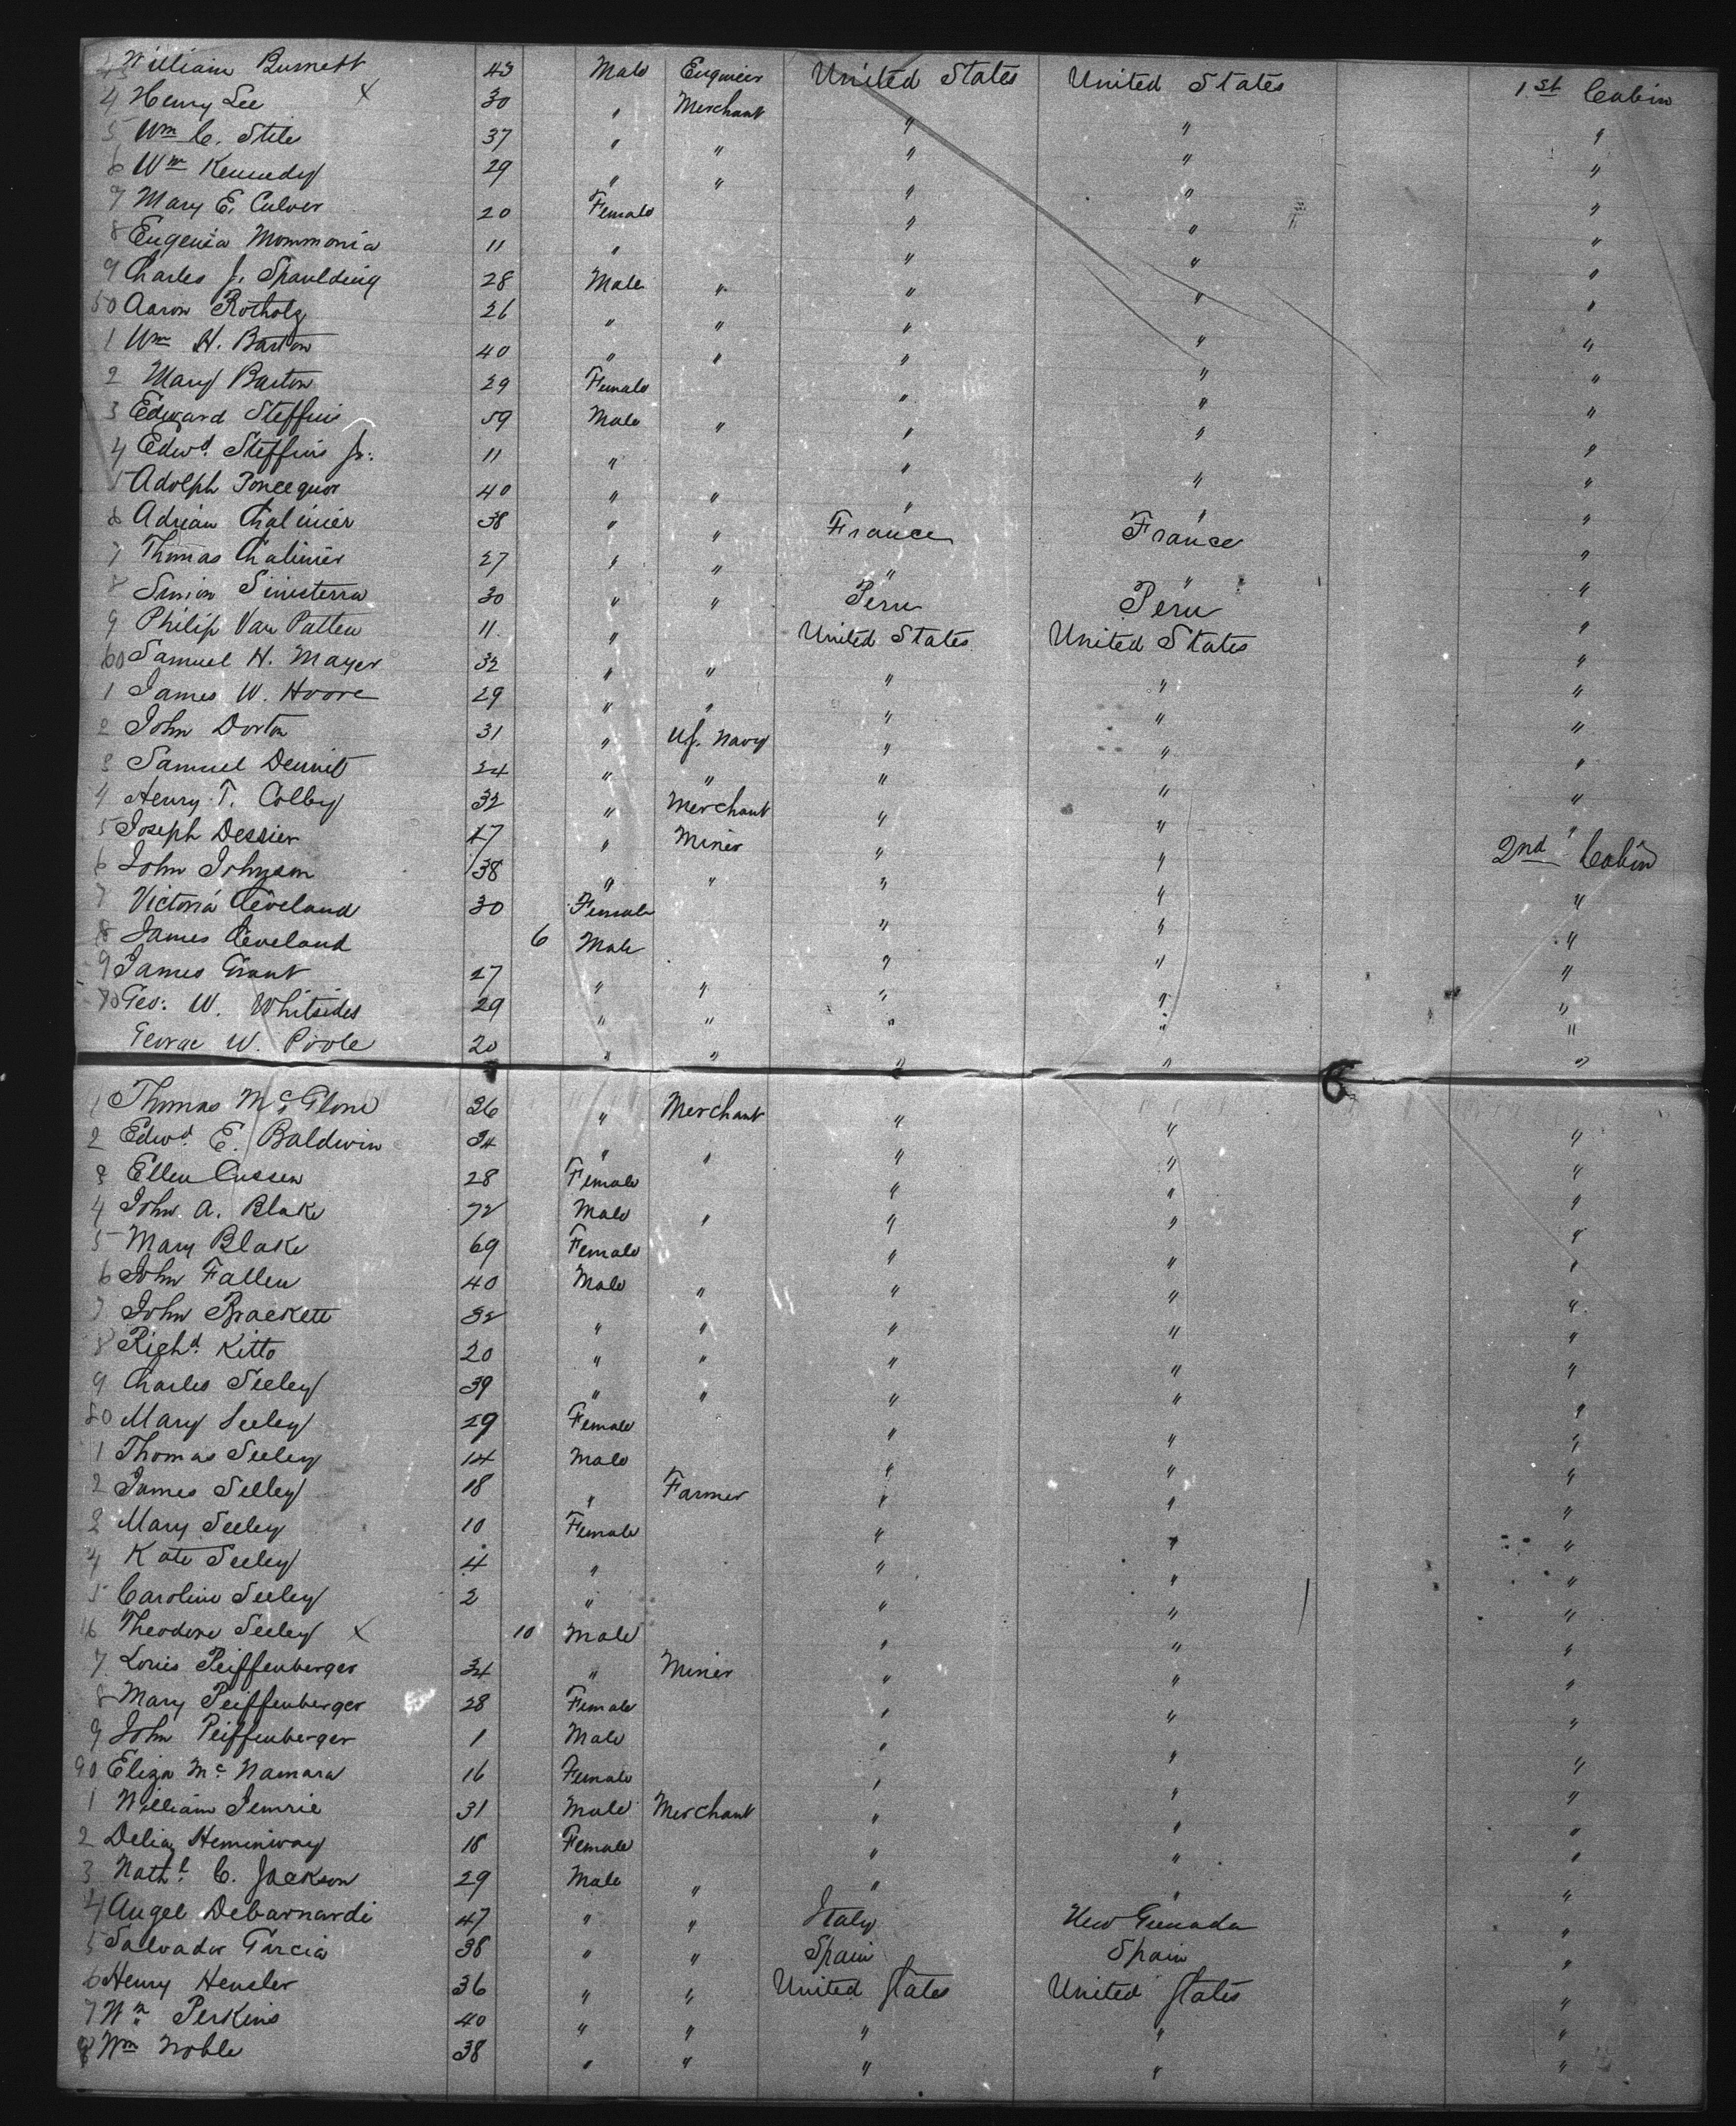 43 William Burnett 43 Male Engineer United States United States 1st Cabin
4 Henry Lee x 30 " Merchant " " "
5 Wm C. Stile 37 " " " " "
6 Wm Kennedy 29 " " " " "
7 Mary E. Culver 20 Female " " "
8 Eugenia Mommonia 11 " " " "
9 Charles J. Spaulding 28 Male " " " "
50 Aaron Rotholz 26 " " " " "
1 Wm H. Barton 40 " " " " "
2 Mary Barton 29 Female " " "
3 Edward Steffins 59 Male " " " "
4 Edwd. Steffins Jr. 11 " " " "
5 Adolph 40 " " " " "
6 Adrian Chalinier 38 " " France France "
7 Thomas Chalinier 27 " " " " "
8 Simion Sinisterra 30 " " Peru Peru "
9 Philip Van Patten 11 " United States United States "
60 Samuel H. Mayer 32 " " " " "
1 James W. Hoore 29 " " " " "
2 John Dorton 31 " U.S. Navy " " "
3 Samuel Dennit 24 " " " " "
4 Henry T. Colby 32 " Merchant " " "
5 Joseph Dessier 47 " Miner " " 2nd Cabin
6 John Johnson 38 " " " " "
7 Victoria Cleveland 30 Female " " "
8 James Cleveland 6 Male " " "
9 James Grant 27 " " " " "
70 Geo: W. Whitsides 29 " " " " "
George W. Poole 20 " " " " "
6
1 Thomas Mc Glone 36 " Merchant " " "
2 Edwd. E. Baldwin 34 " " " " "
3 Ellen Cussen 28 Female " " "
4 John A. Blake 72 Male " " " "
5 Mary Blake 69 Female " " "
6 John Fallen 40 Male " " " "
7 John Brackett 32 " " " " "
8 Righd. Kitto 20 " " " " "
9 Charles Seeley 39 " " " " "
80 Mary Seeley 29 Female " " "
1 Thomas Seeley 14 Male " " "
2 James Seeley 18 " Farmer " " "
3 Mary Seeley 10 Female " " "
4 Kate Seeley 4 " " " "
5 Caroline Seeley 2 " " " "
16 Theodore Seeley x 10 Male " " "
7 Louis Peiffenberger 34 " Miner " " "
8 Mary Peiffenberger 28 Female " " "
9 John Peiffenberger 1 Male " " "
90 Eliza Mc Namara 16 Female " " "
1 William 31 Male Merchant " " "
2 Delia Heminway 18 Female " " "
3 Nathl. C. Jackson 29 Male " " " "
4 Angel Debarnardi 47 " " Italy New Grenada "
5 Salvador Garcia 38 " " Spain Spain "
6 Henry Hensler 36 " " United States United States "
7 Wm Perkins 40 " " " " "
8 Wm Noble 38 " " " " "